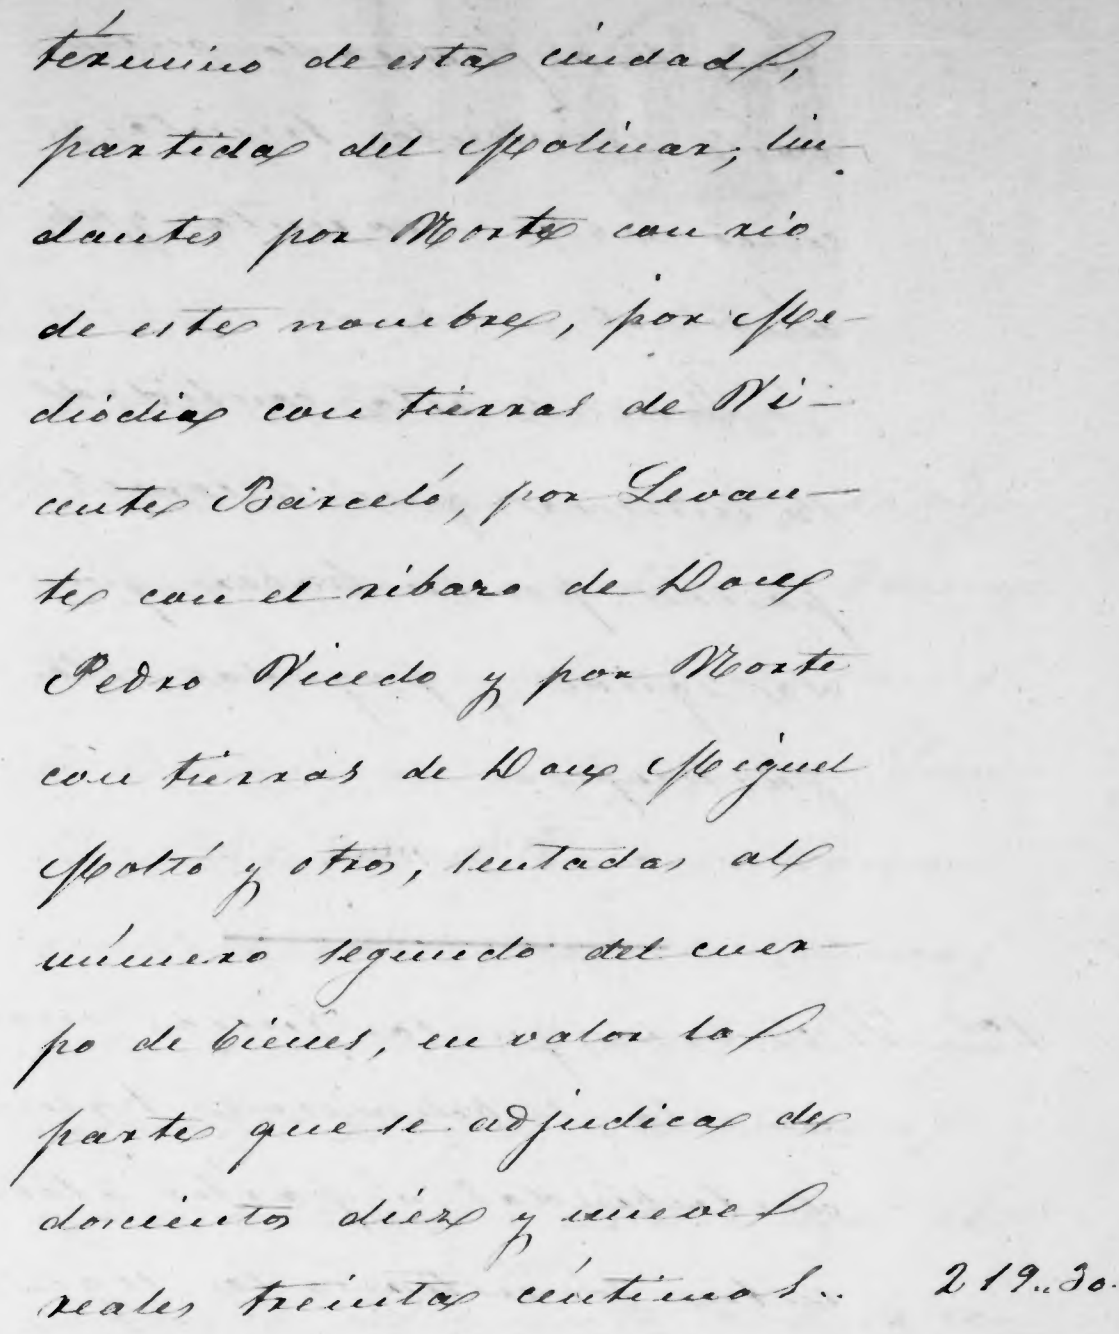 término de esta ciudad,
partida del Molinar, lin-
dantes por Norte con rio
de este nombre, por Me-
diodia con tierras de Vi-
cente Barceló, por Levan-
te con el ribazo de Don
Pedro Vicedo y por Norte
con tierras de Don Miguel
Moltó y otros, sentadas al
número segundo del cuer-
po de bienes, en valor la
parte que se adjudica de
doscientos diez y nueve
reales treinta céntimos.. 219..30.